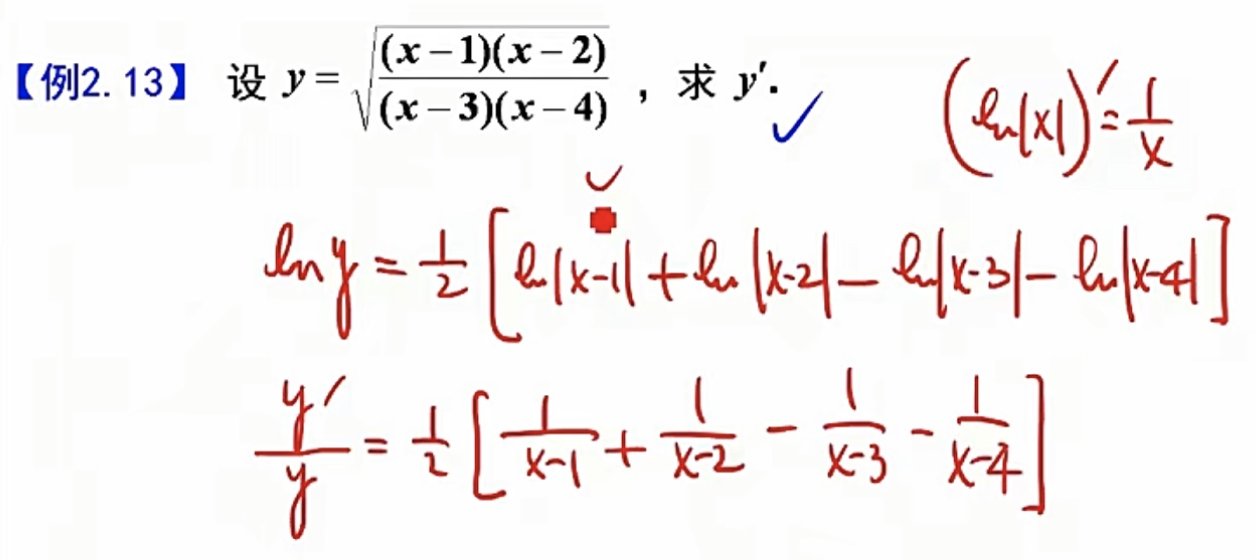 【例2.13】 设 y = √((x−1)(x−2)/((x−3)(x−4))) , 求 y′.
(ln|x|)′ = 1/x
ln y = 1/2 [ln|x-1| + ln|x-2| − ln|x-3| − ln|x-4|]
y′/y = 1/2 [1/(x-1) + 1/(x-2) − 1/(x-3) − 1/(x-4)]